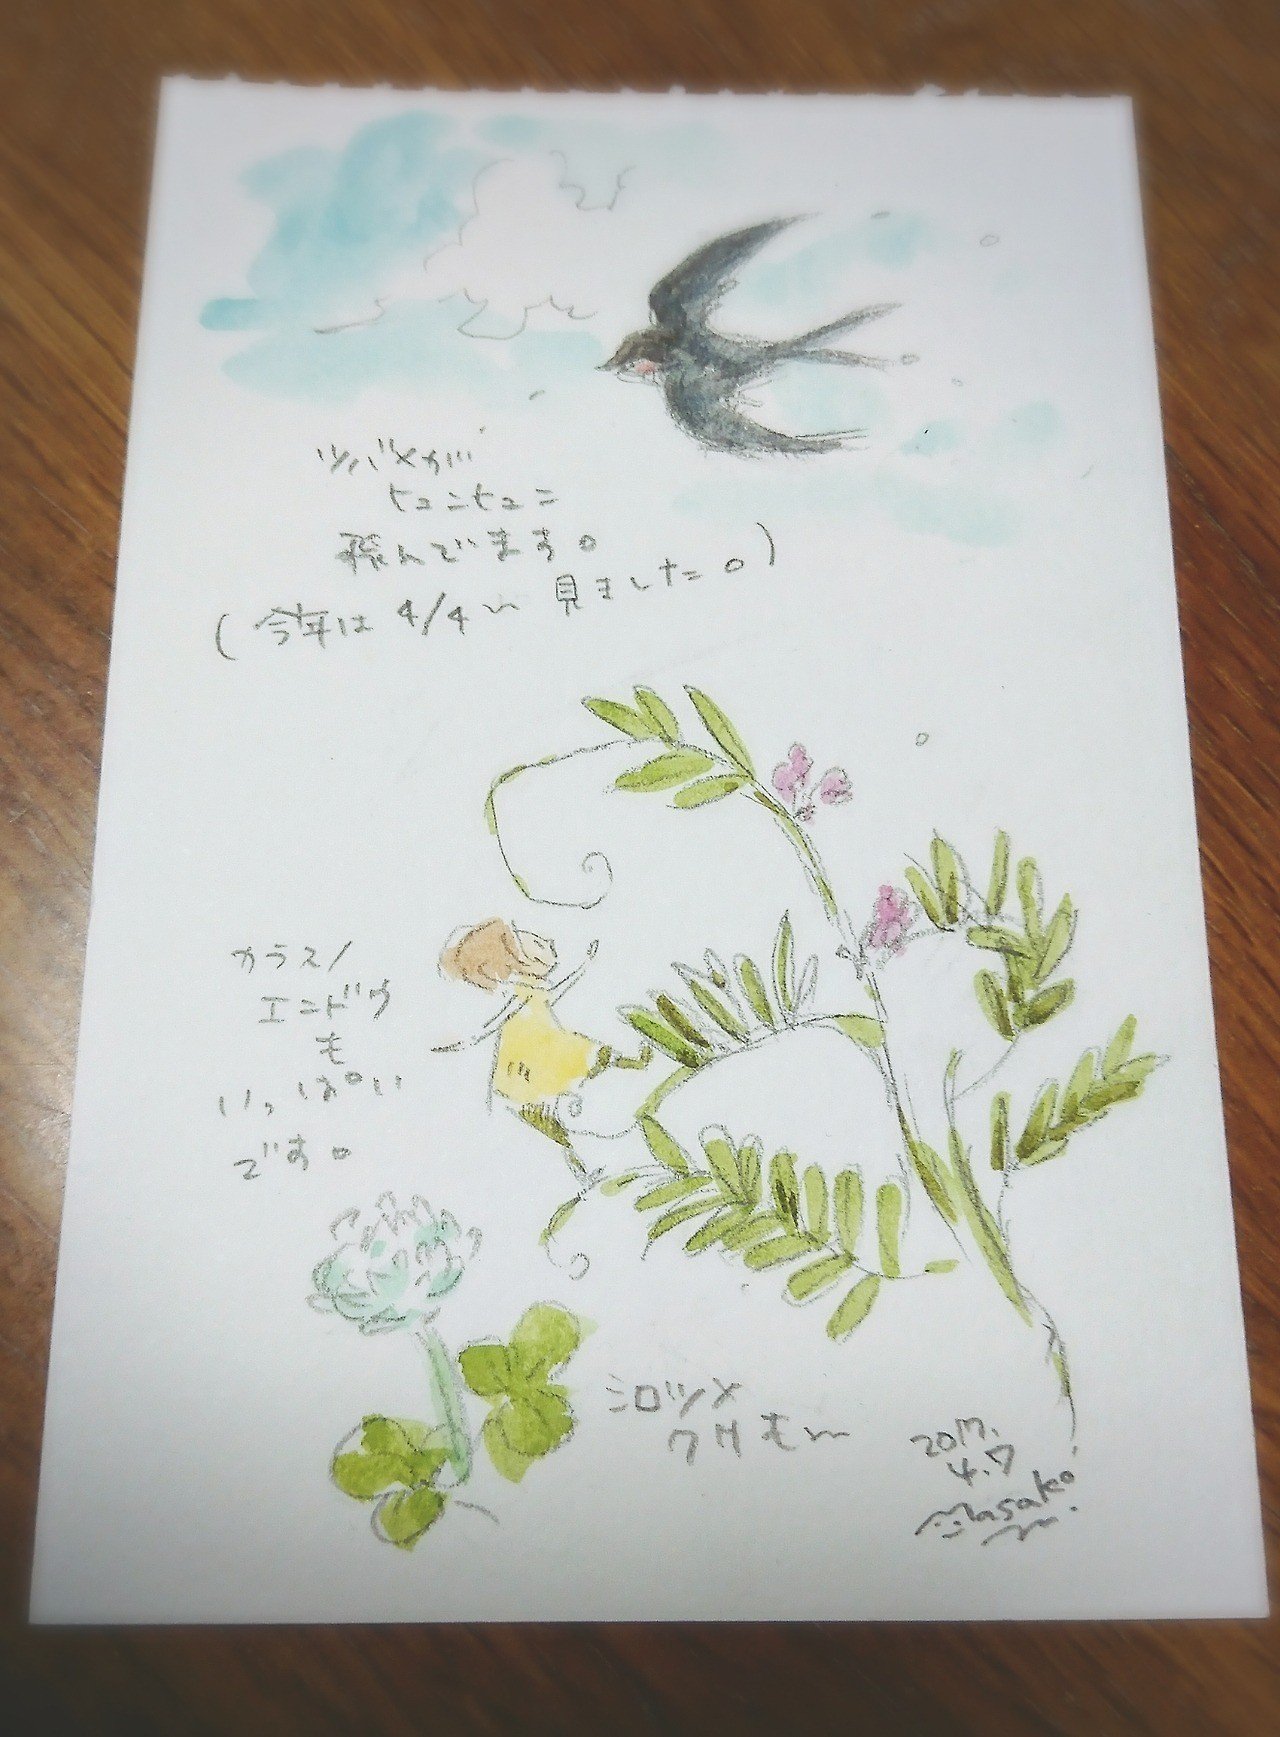 ツバメが
ヒュンヒュン
飛んでます。
(今年は4/4〜見ました。)
カラスノ
エンドウ
も
いっぱい
です。
シロツメ
クサも〜
2017.
4.7
Masako